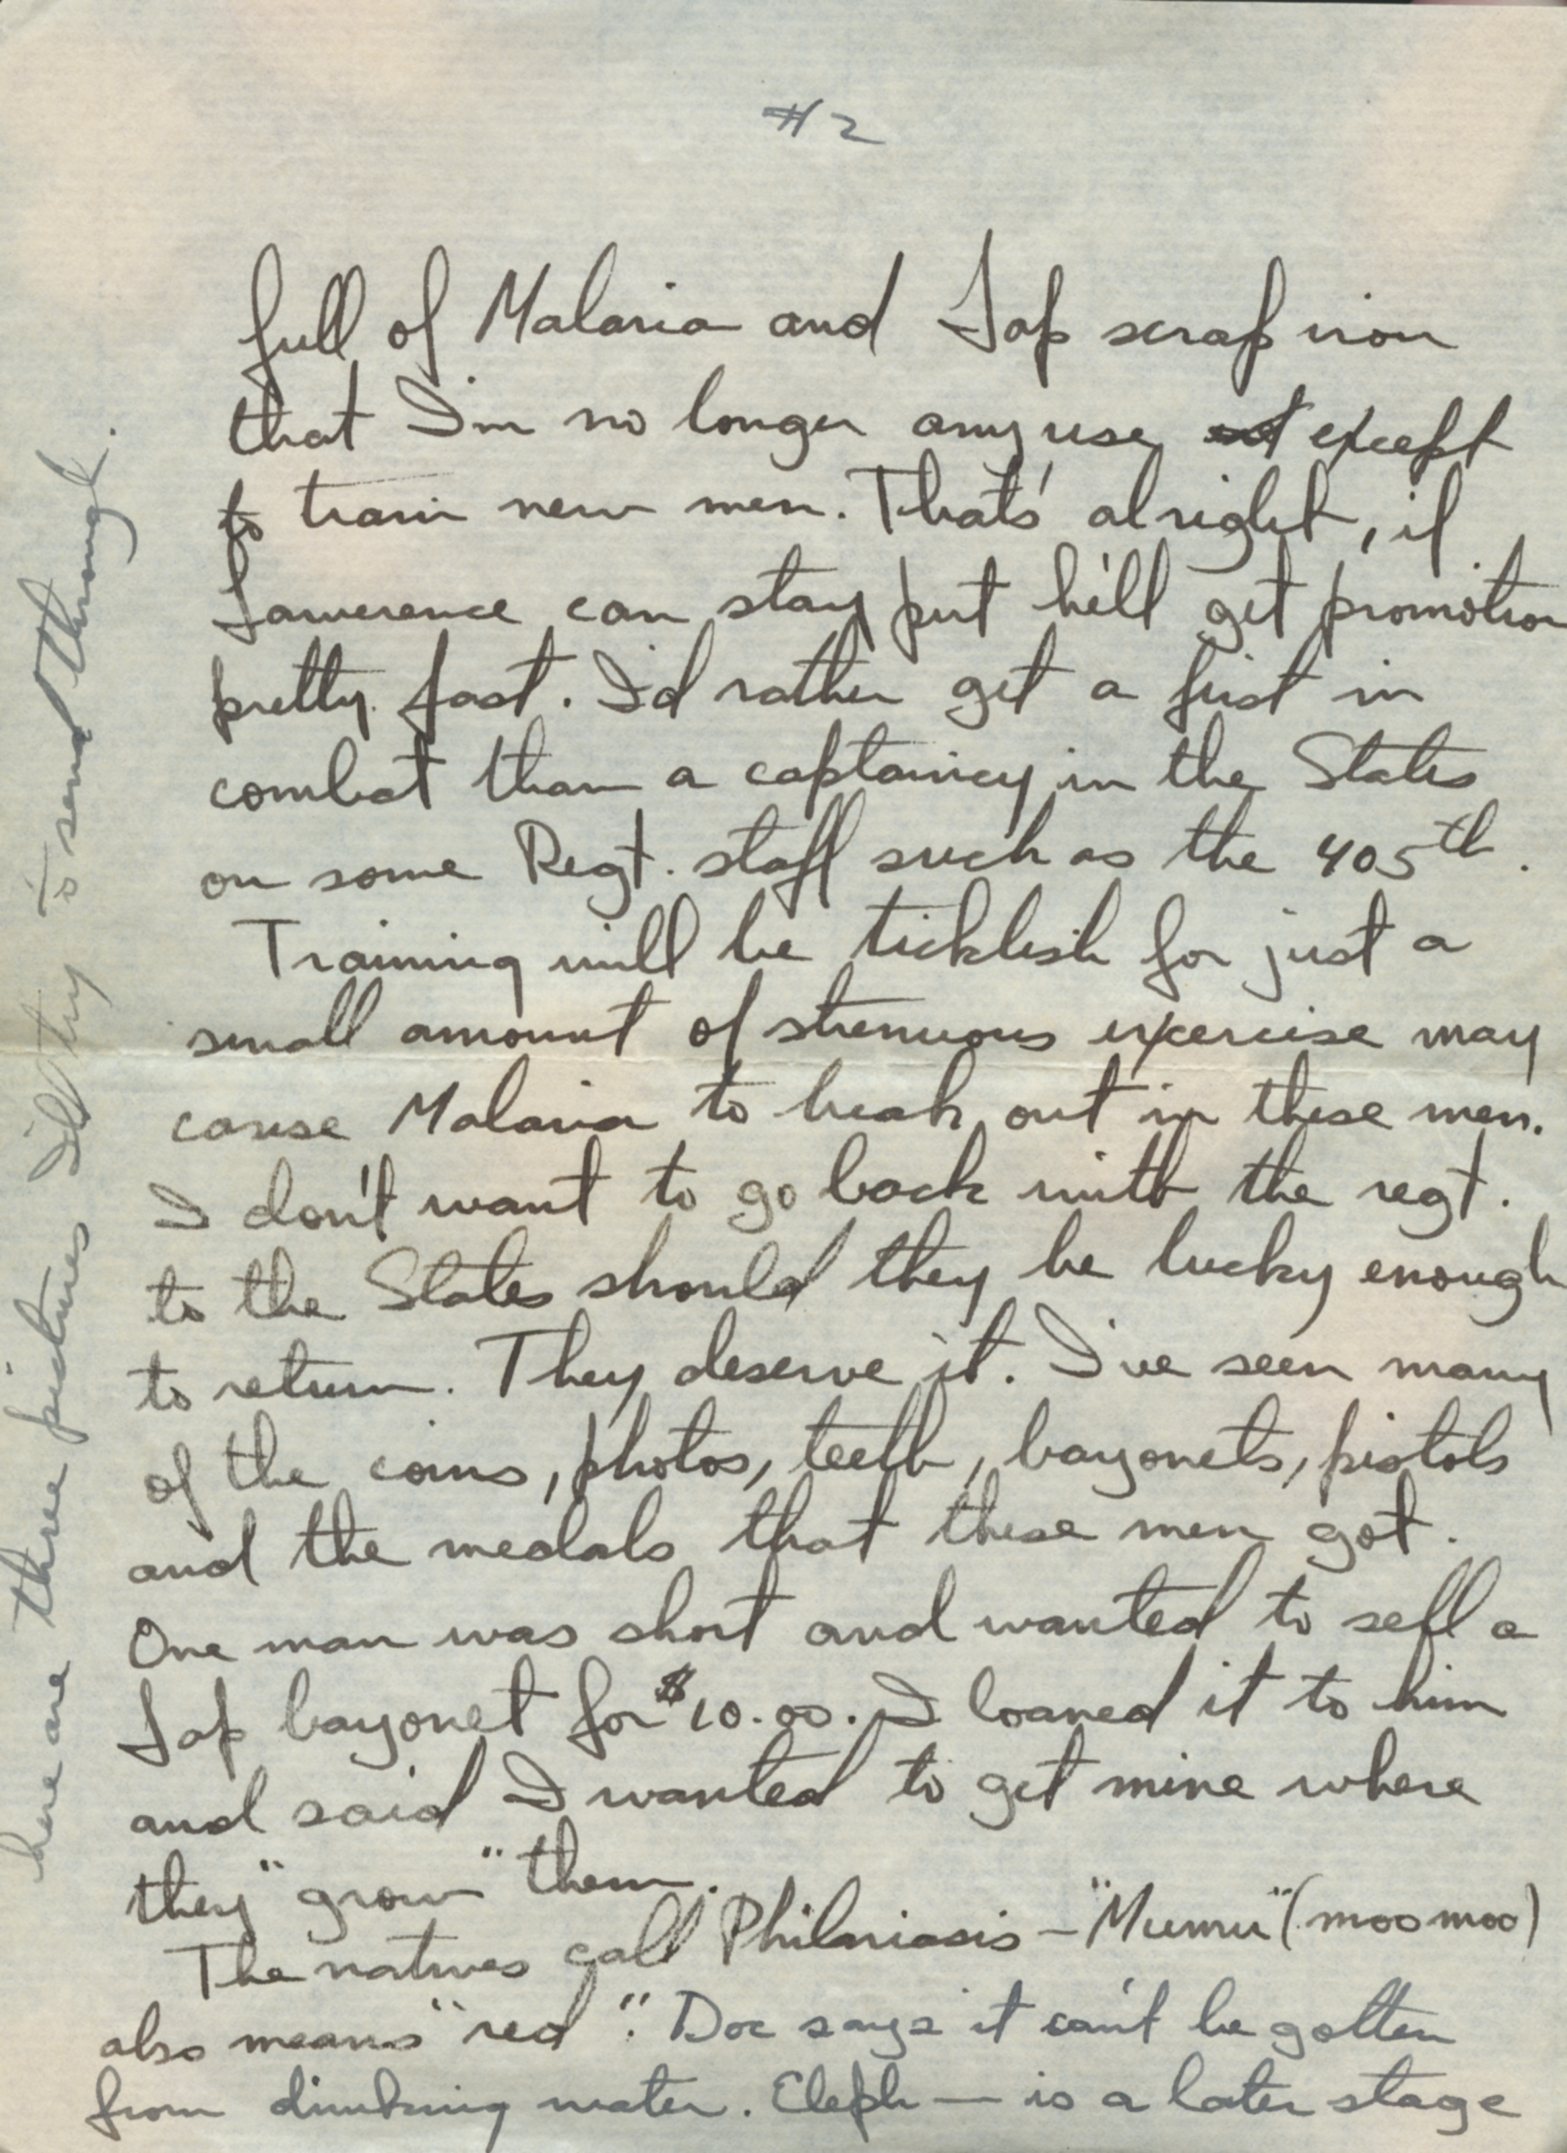 #2
full of Malaria and Jap scrap iron
that I'm no longer any use except
to train new men. That's alright, if
Lawerence can stay put he'll get promotion
pretty fast. I'd rather get a first in
combat than a captaincy in the States
on some Regt. staff such as the 405th.
Training will be ticklish for just a
small amount of strenuous exercise may
cause Malaria to break out in these men.
I don't want to go back with the regt.
to the States should they be lucky enough
to return. They deserve it. I've seen many
of the coins, photos, teeth, bayonets, pistols
and the medals that these men got.
One man was short and wanted to sell a
Jap bayonet for $10.00. I loaned it to him
and said I wanted to get mine where
they "grow" them.
The natives call Philariasis - "Mumu" (moo moo)
also means "red". Doc says it can't be gotten
from drinking water. Eleph — is a later stage
here are three pictures I'll try to send through.